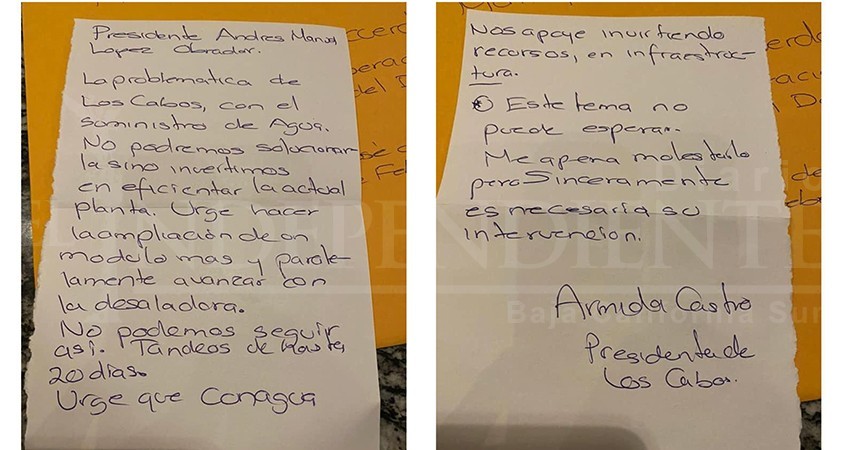 Presidente Andres Manuel
Lopez Obrador.
La problematica de
Los Cabos, con el
suministro de Agua.
No podremos solucionar-
la sino invertimos
en eficientar la actual
planta. Urge hacer
la ampliación de un
modulo mas y parale-
lamente avanzar con
la desaladora.
No podemos seguir
asi. Tandeos de hasta
20 dias.
Urge que Conagua
Nos apoye invirtiendo
recursos, en infraestruc-
tura.
Este tema no
puede esperar.
Me apena molestarlo
pero Sinceramente
es necesaria su
intervencion.
Armida Castro
Presidenta de
Los Cabos.
Diario
EL INDEPENDIENTE
Baja California Sur